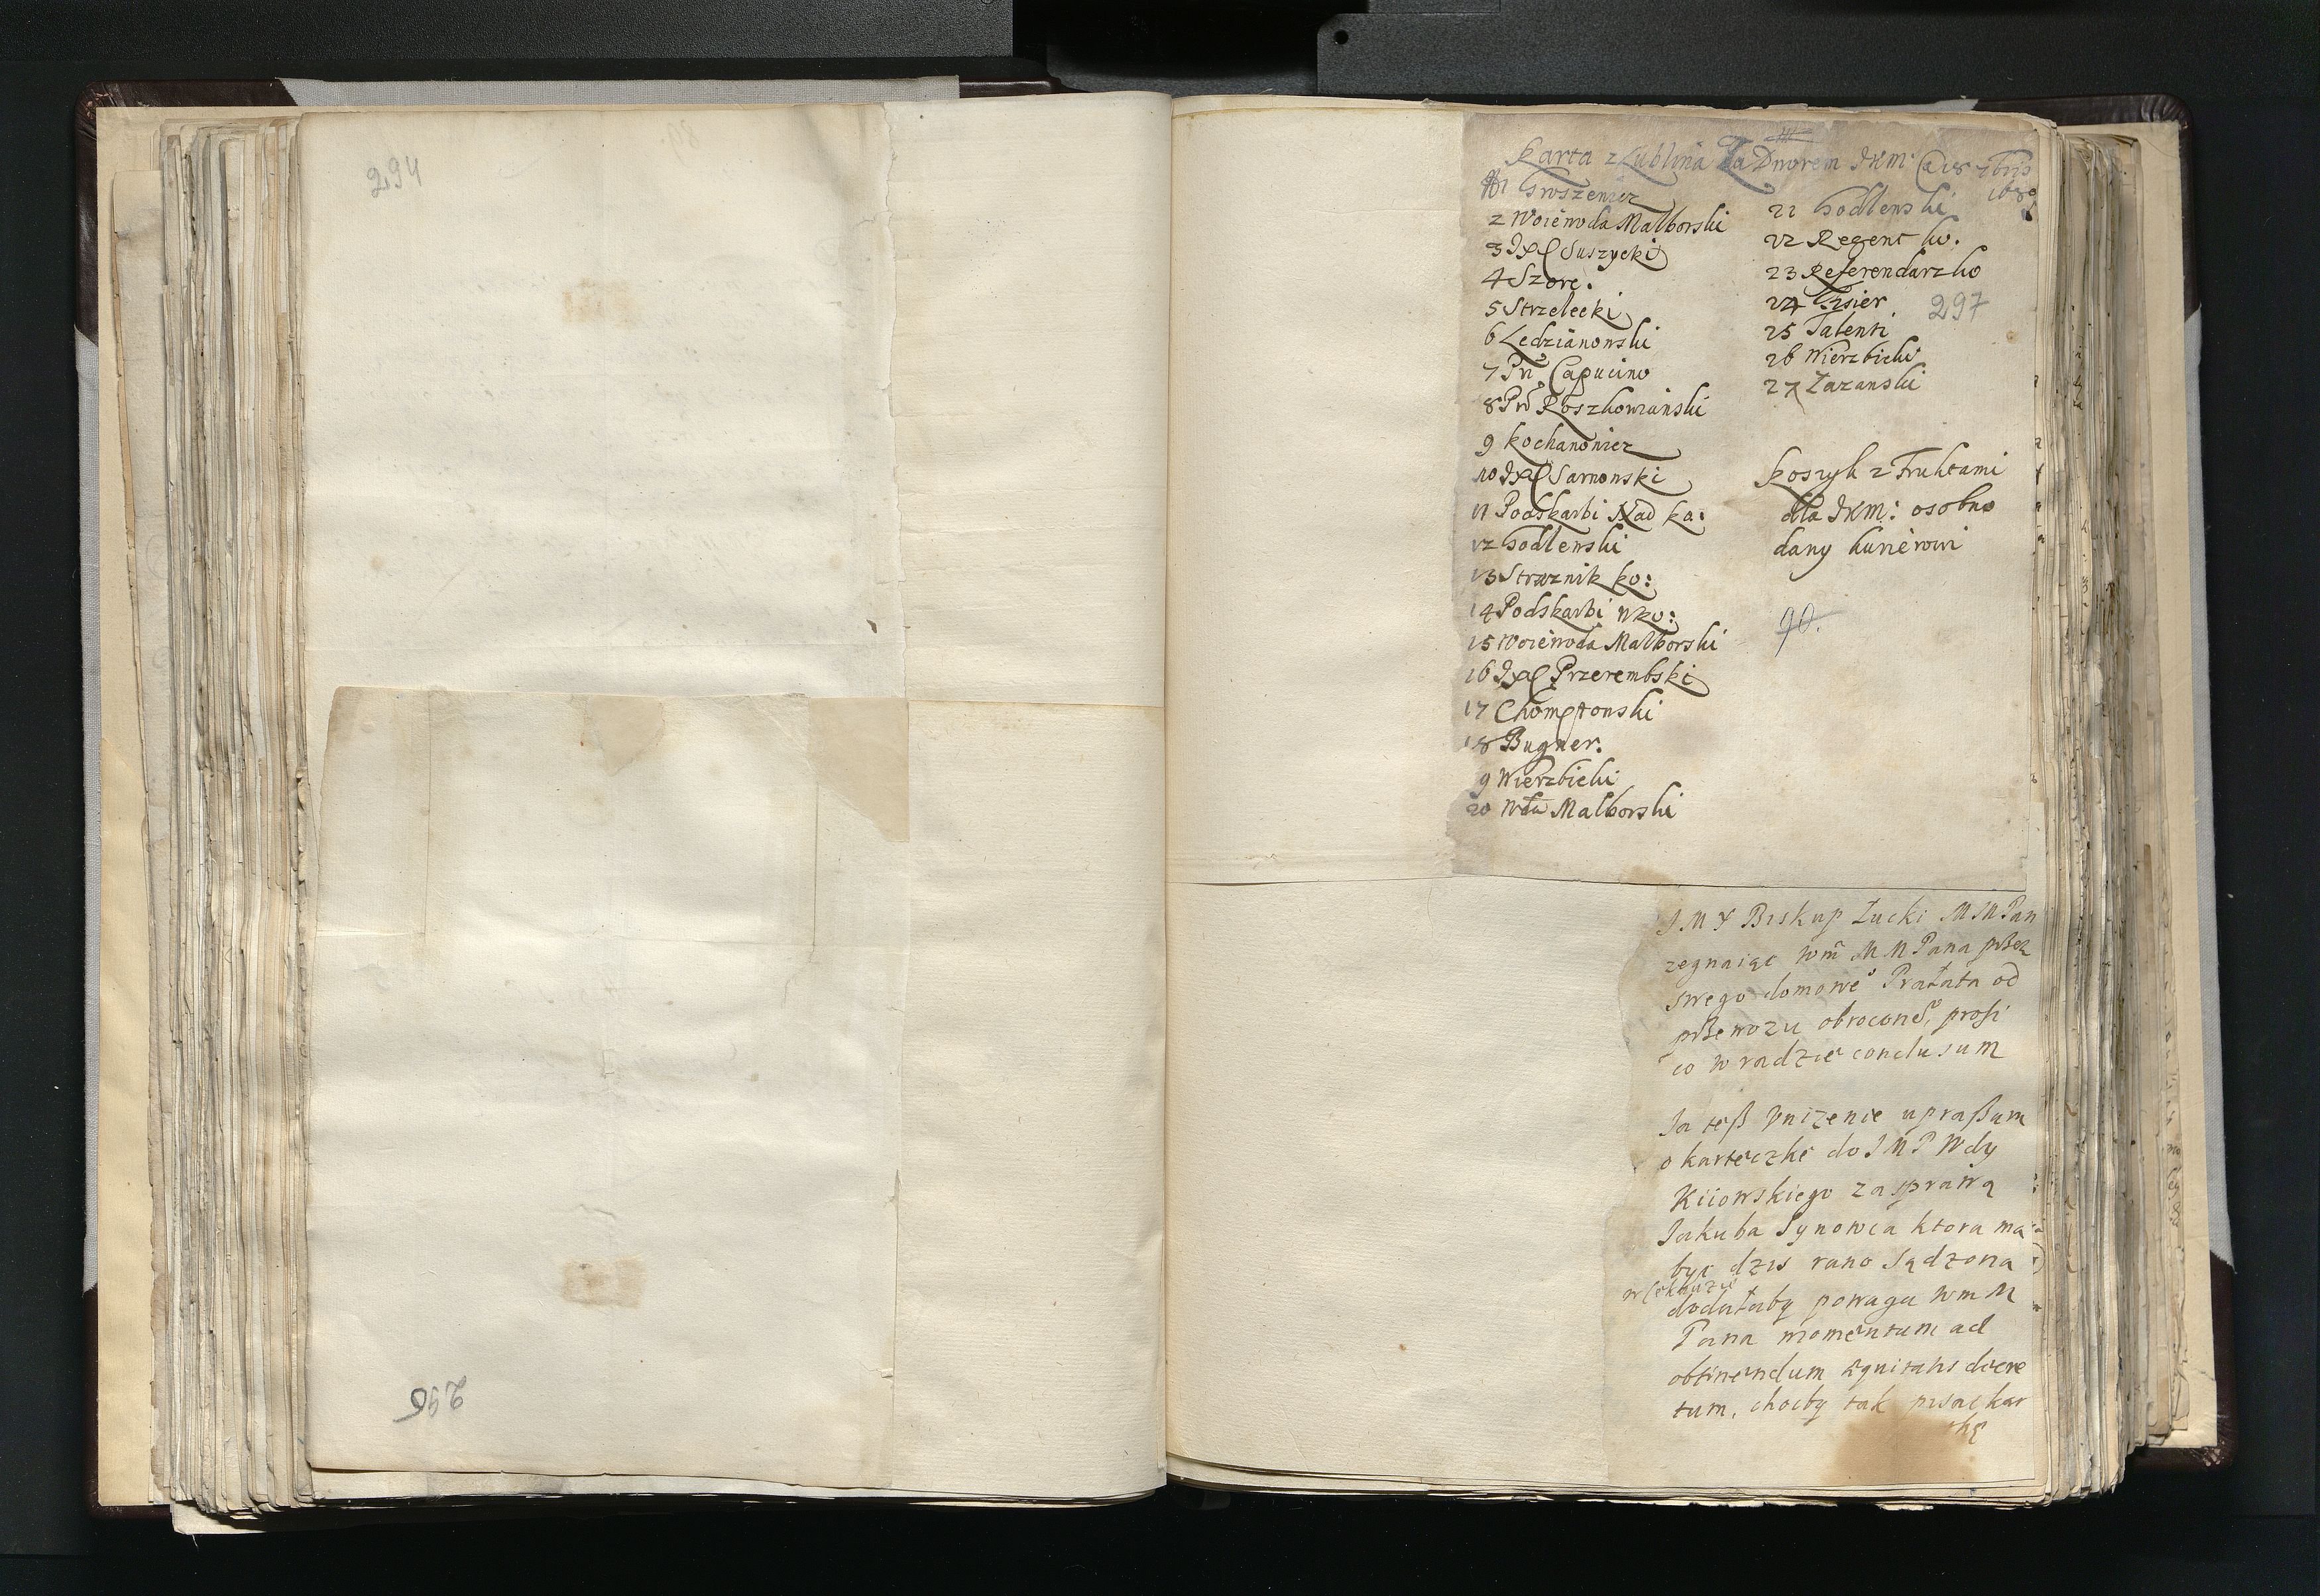 294
296
Karta z Lublina Za Dworem JKM: 18 7bris
1680
1 Groszewicz
2 Woiewoda Malborski
3 JX Suszycki
4 Szorc.
5 Strzelecki
6 Ledzianowski
7 Pn Capucino
8 Pn Roszkowianski
9 Kochanowicz
10 JX Sarnowski
11 Podskarbi Nad ko:
12 Godlewski
13 Straznik ko:
14 Podskarbi nko:
15 Woiewoda Malborski
16 JX Przerembski
17 Chomętowski
18 Bugner.
9 Wierzbicki
20 Wda Malborski
21 Godlewski
22 Regent ko.
23 Referendarz ko
24
297
25 Talenti
26 Wierzbicki
27 Zazanski
Koszyk z Fruktami
dla JKM: osobno
dany kurierowi
90.
J M X Biskup Łucki M M Pan
zegnaiąc wm M M Pana przez
swego domowe° Prałata od
przewozu obrocone°, prosi
co w radzie conclusum
Ia teß vnizenie upraßam
o karteczke do J M P Wdy
Kiiowskiego za sprawą
Jakuba Synowca ktora ma
bydz dzis rano sądzona
dodałaby powaga wm M
Pana momentum ad
obtinendum æquitatis decre
tum, chocby tak pisac kar
tkę